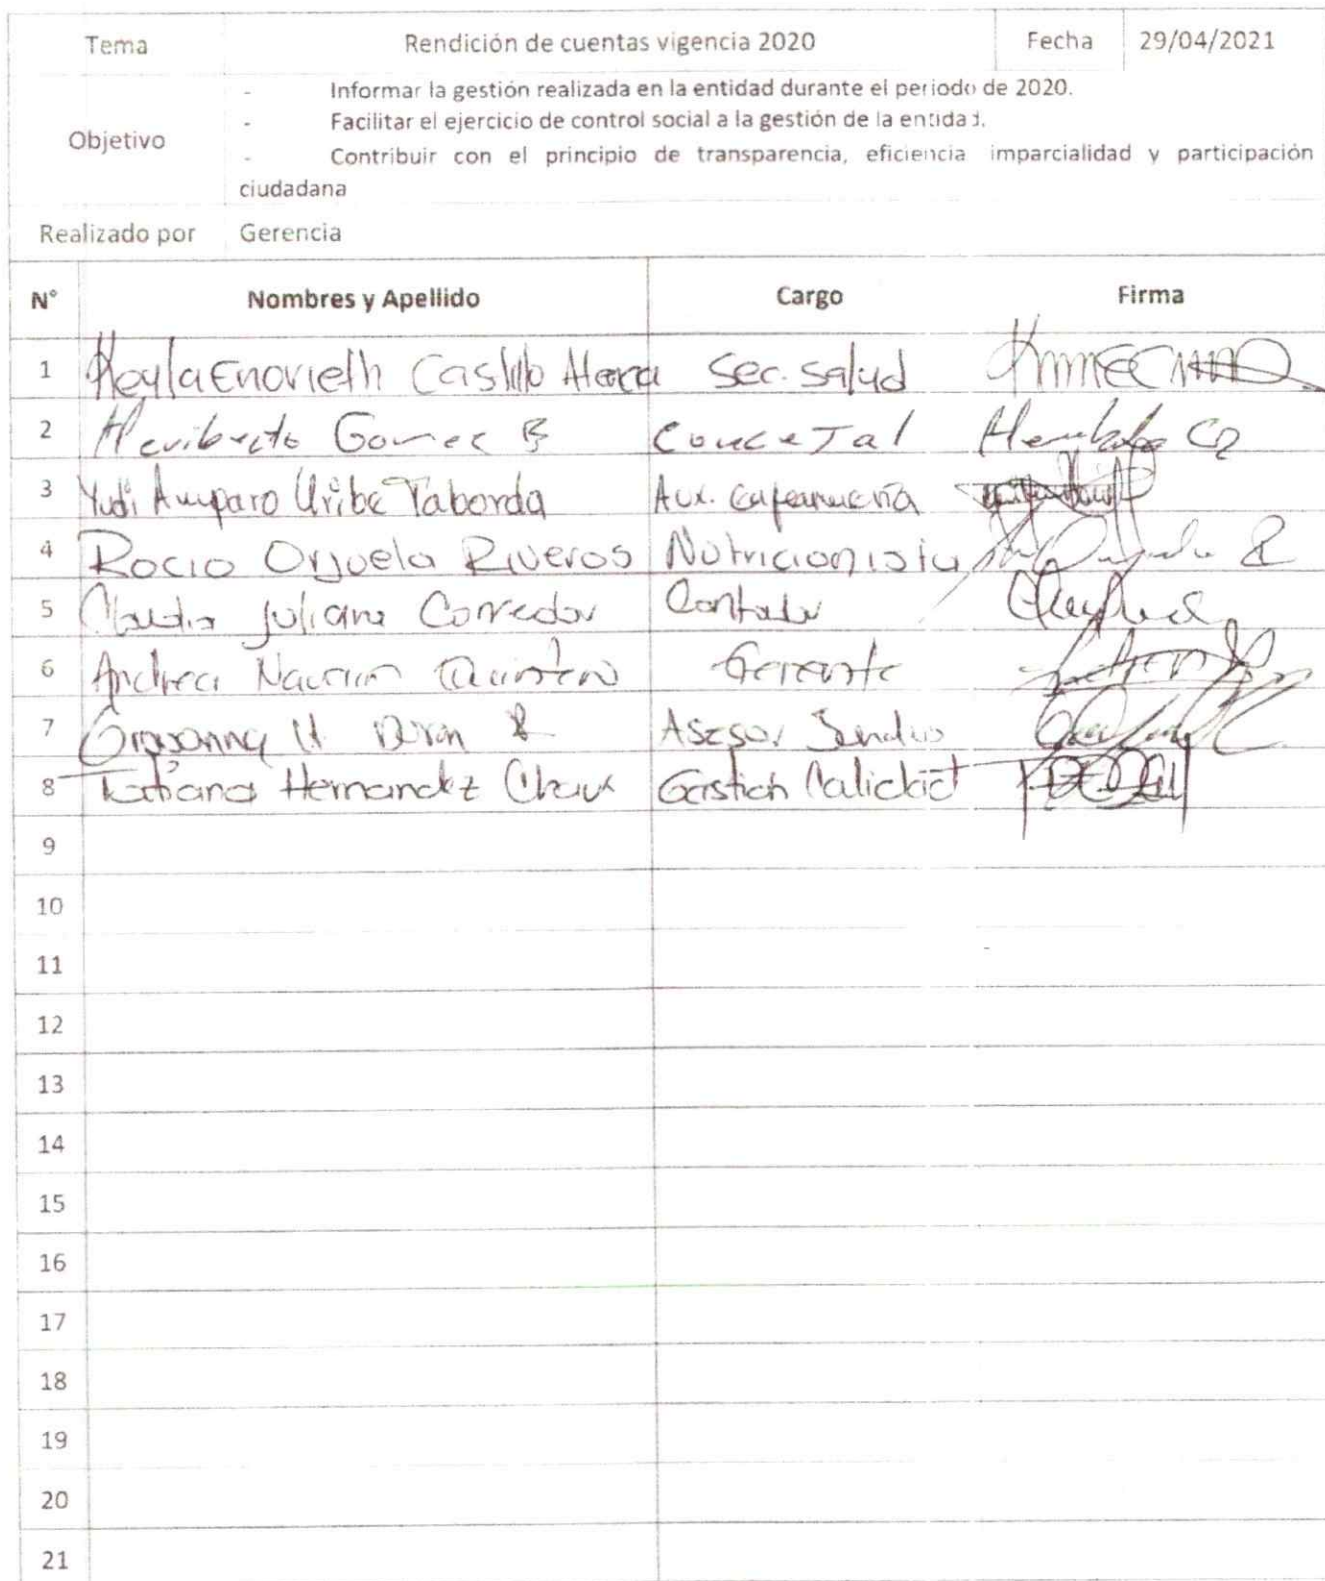 Tema Rendición de cuentas vigencia 2020 Fecha 29/04/2021
- Informar la gestión realizada en la entidad durante el periodo de 2020.
- Facilitar el ejercicio de control social a la gestión de la entidad.
Objetivo
- Contribuir con el principio de transparencia, eficiencia imparcialidad y participación
ciudadana
Realizado por Gerencia
N° Nombres y Apellido Cargo Firma
1 Castillo Sec. Salud
2 Heriberto Gomez Concejal
3 Yudi Amparo Uribe Taborda Aux. enfermería
4 Rocio Orjuela Riveros Nutricionista
5 Claudia Juliana Corredor Contador
6 Andrea Quintero Gerente
7 Asesor
8 Tatiana Hernandez Chaux Gestion Calidad
9
10
11
12
13
14
15
16
17
18
19
20
21